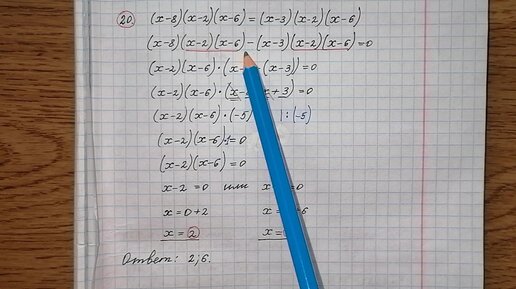 20. (x-8)(x-2)(x-6)=(x-3)(x-2)(x-6)
(x-8)(x-2)(x-6)-(x-3)(x-2)(x-6)=0
(x-2)(x-6)·(x- -(x-3))=0
(x-2)(x-6)·(x- x+3)=0
(x-2)(x-6)·(-5) |:(-5)
(x-2)(x-6)·1=0
(x-2)(x-6)=0
x-2=0 или x =0
x=0+2 x= 6
x=2 x=
Ответ: 2;6.